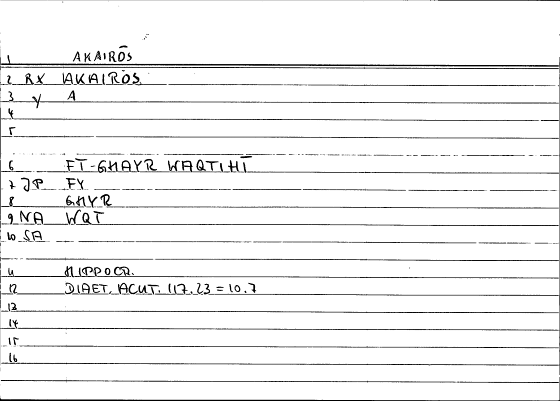 1 AKAIRŌS
2 RX AKAIRŌS
3 Y A
4
5
6 FT-GHAYR WAQTIHĪ
7 JP FY
8 GHYR
9 NA WQT
10 SA
11 HIPPOCR.
12 DIAET. ACUT. 117.23 = 10.7
13
14
15
16